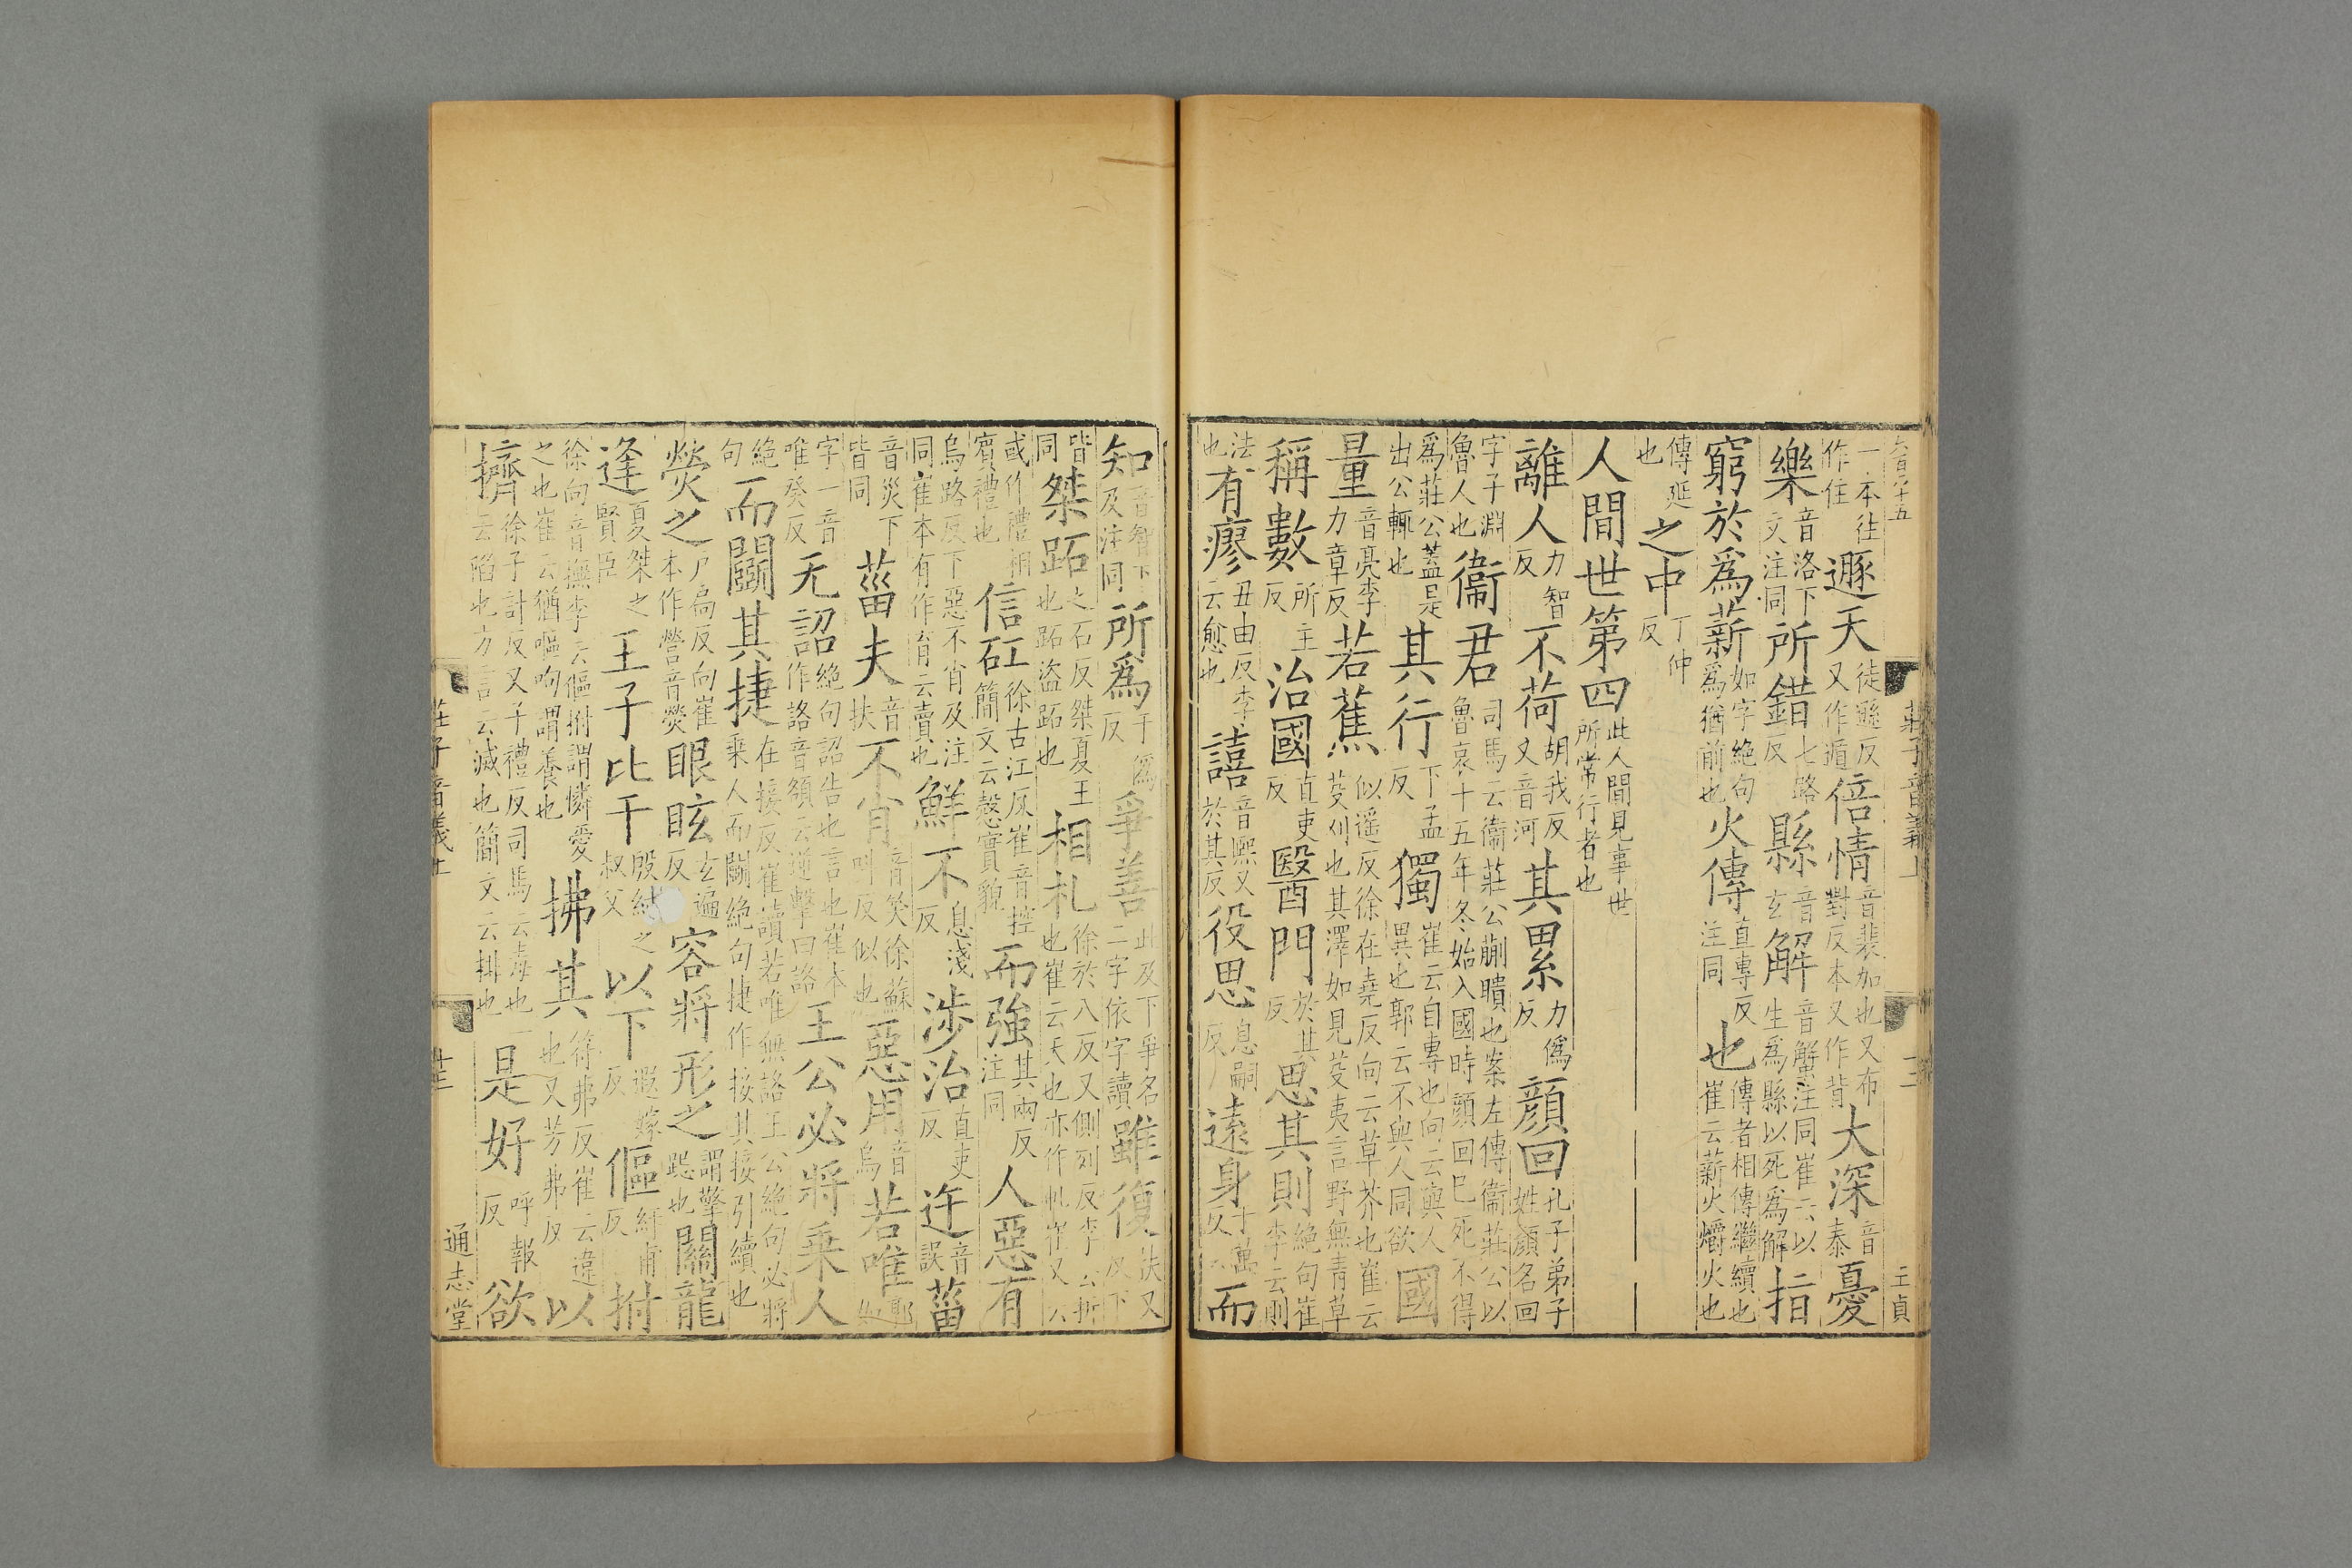 一本往作住遯天徒遜反又作遁倍情音裴加也又布對反本又作背大深音泰憂
樂音洛下文注同所錯七路反縣音玄解音蟹注同崔云以生爲縣以死爲解指
窮於爲薪如字絶句爲猶前也火傳直專反注同也傳者相傳繼續也崔云薪火爝火也
傳延也之中丁仲反
人間世第四此人間見事世所常行者也
離人力智反不荷胡我反又音河其累力僞反顔回孔子弟子姓顔名回
字子淵魯人也衞君司馬云衞莊公蒯聵也案左傳衞莊公以魯哀十五年冬始入國時顔回已死不得
爲莊公蓋是出公輒也其行下孟反獨崔云自專也向云與人異也郭云不與人同欲國
量音亮李力章反若蕉似遥反徐在堯反向云草芥也崔云芟刈也其澤如見芟夷言野無青草
稱數所主反治國直吏反醫門於其反思其則絶句崔李云則
法也有瘳丑由反李云愈也譆音熙又於其反役思息嗣反遠身于萬反而
莊子音義上
王貞
知音智下及注同所爲于僞反爭善此及下爭名二字依字讀雖復扶又反下
皆同桀跖之石反桀夏王也跖盜跖也相札徐於八反又側列反李云折也崔云夭也亦作軋崔又云
或作禮相賓禮也信矼徐古江反崔音控簡文云慤實貌而強其兩反注同人惡有
烏路反下惡不肖及注同崔本有作育云賣也鮮不息淺反渉治直吏反迕音誤菑
音災下皆同菑夫音扶不肖音笑徐蘇叫反似也惡用音烏若唯郭如
字一音唯癸反无詔絶句詔告也言也崔本作詻音頟云逆擊曰詻王公必將乗人
絶句而鬭其捷在接反崔讀若唯無詻王公絶句必將乗人而鬭絶句捷作接其接引續也
熒之戸扃反向崔本作營音熒眼眩玄遍反容將形之謂擎跽也關龍
逢夏桀之賢臣王子比干殷紂之叔父以下遐嫁反傴紆甫反拊
徐向音撫李云傴拊謂憐愛之也崔云猶嘔呴謂養也拂其符弗反崔云違也又芳弗反以
擠徐子計反又子禮反司馬云毒也一云陷也方言云滅也簡文云排也是好呼報反欲
莊子音義上
通志堂